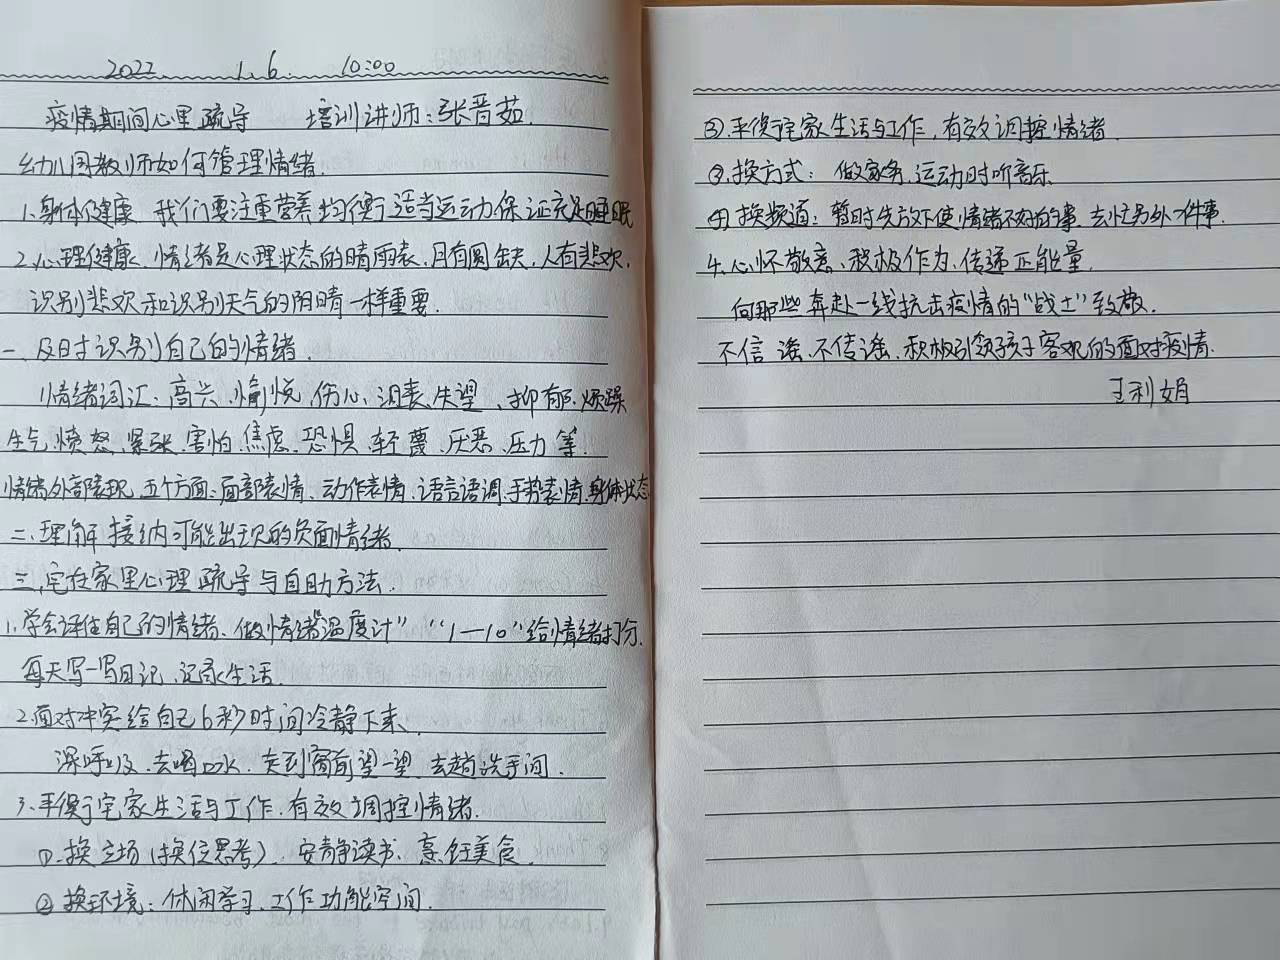 2022 1.6. 10:00
疫情期间心里疏导 培训讲师:张晋茹.
幼儿园教师如何管理情绪.
1.身体健康 我们要注重营养均衡、适当运动、保证充足睡眠
2.心理健康、情绪是心理状态的晴雨表.月有圆缺,人有悲欢.
识别悲欢和识别天气的阴晴一样重要.
一、及时识别自己的情绪.
情绪词汇、高兴、愉悦、伤心、沮丧、失望、抑郁、烦躁
生气、愤怒、紧张、害怕、焦虑、恐惧、轻蔑、厌恶、压力等.
情绪外部表现、五个方面、面部表情、动作表情、语言语调、手势表情、身体状态
二、理解接纳可能出现的负面情绪.
三、宅在家里心理疏导与自助方法.
1.学会评估自己的情绪、做情绪"温度计" "1—10"给情绪打分.
每天写一写日记、记录生活.
2.面对冲突给自己6秒时间冷静下来.
深呼吸、去喝口水、走到窗前望一望、去趟洗手间.
3、平衡宅家生活与工作、有效调控情绪.
①.换立场(换位思考)、安静读书、烹饪美食.
② 换环境:休闲学习、工作功能空间.
③.平衡宅家生活与工作,有效调控情绪.
③.换方式:做家务、运动时听音乐
④ 换频道:暂时先放下使情绪不好的事、去忙另外一件事.
4、心怀敬意、积极作为、传递正能量.
向那些奔赴一线抗击疫情的"战士"致敬.
不信谣、不传谣、积极引领孩子客观的面对疫情.
王利娟